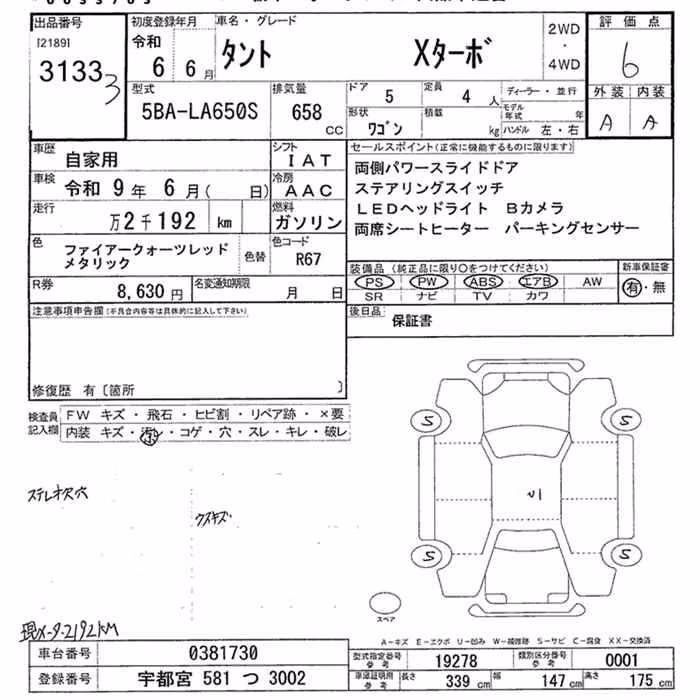 出品番号
[2189]
3133 3
初度登録年月
令和
6 6月
車名・グレード
タント Xターボ
2WD
・
4WD
評価点
6
外装 内装
A A
型式
5BA-LA650S
排気量
658
CC
ドア
5
定員
4 人
ディーラー・並行
形状
ワゴン
積載
kg
モデル年式 年
ハンドル 左・右
車歴
自家用
シフト
IAT
車検
令和 9年 6月( 日)
冷房
AAC
走行
万2千192 km
燃料
ガソリン
色
ファイアークォーツレッド
メタリック
色替
色コード
R67
R券
8,630円
名変通知期限
月 日
セールスポイント(正常に機能するものに限ります)
両側パワースライドドア
ステアリングスイッチ
LEDヘッドライト Bカメラ
両席シートヒーター パーキングセンサー
装備品(純正品に限り○をつけてください)
新車保証書
PS PW ABS エアB AW
SR ナビ TV カワ
有・無
後日品
保証書
注意事項申告欄(不具合内容等は具体的に記入して下さい)
修復歴 有〔箇所 〕
検査員
記入欄
FW キズ・飛石・ヒビ割・リペア跡・×要
内装 キズ・汚レ・コゲ・穴・スレ・キレ・破レ
ステレオ欠穴
ウスキズ
現メーター2192KM
S
S
S
S
スペア
A-キズ E-エクボ U-凹み W-補修跡 S-サビ C-腐食 XX-交換済
車台番号
0381730
登録番号
宇都宮 581 つ 3002
型式指定番号
参考
19278
類別区分番号
参考
0001
車庫証明用
参考
長さ
339 cm
幅
147 cm
高さ
175 cm